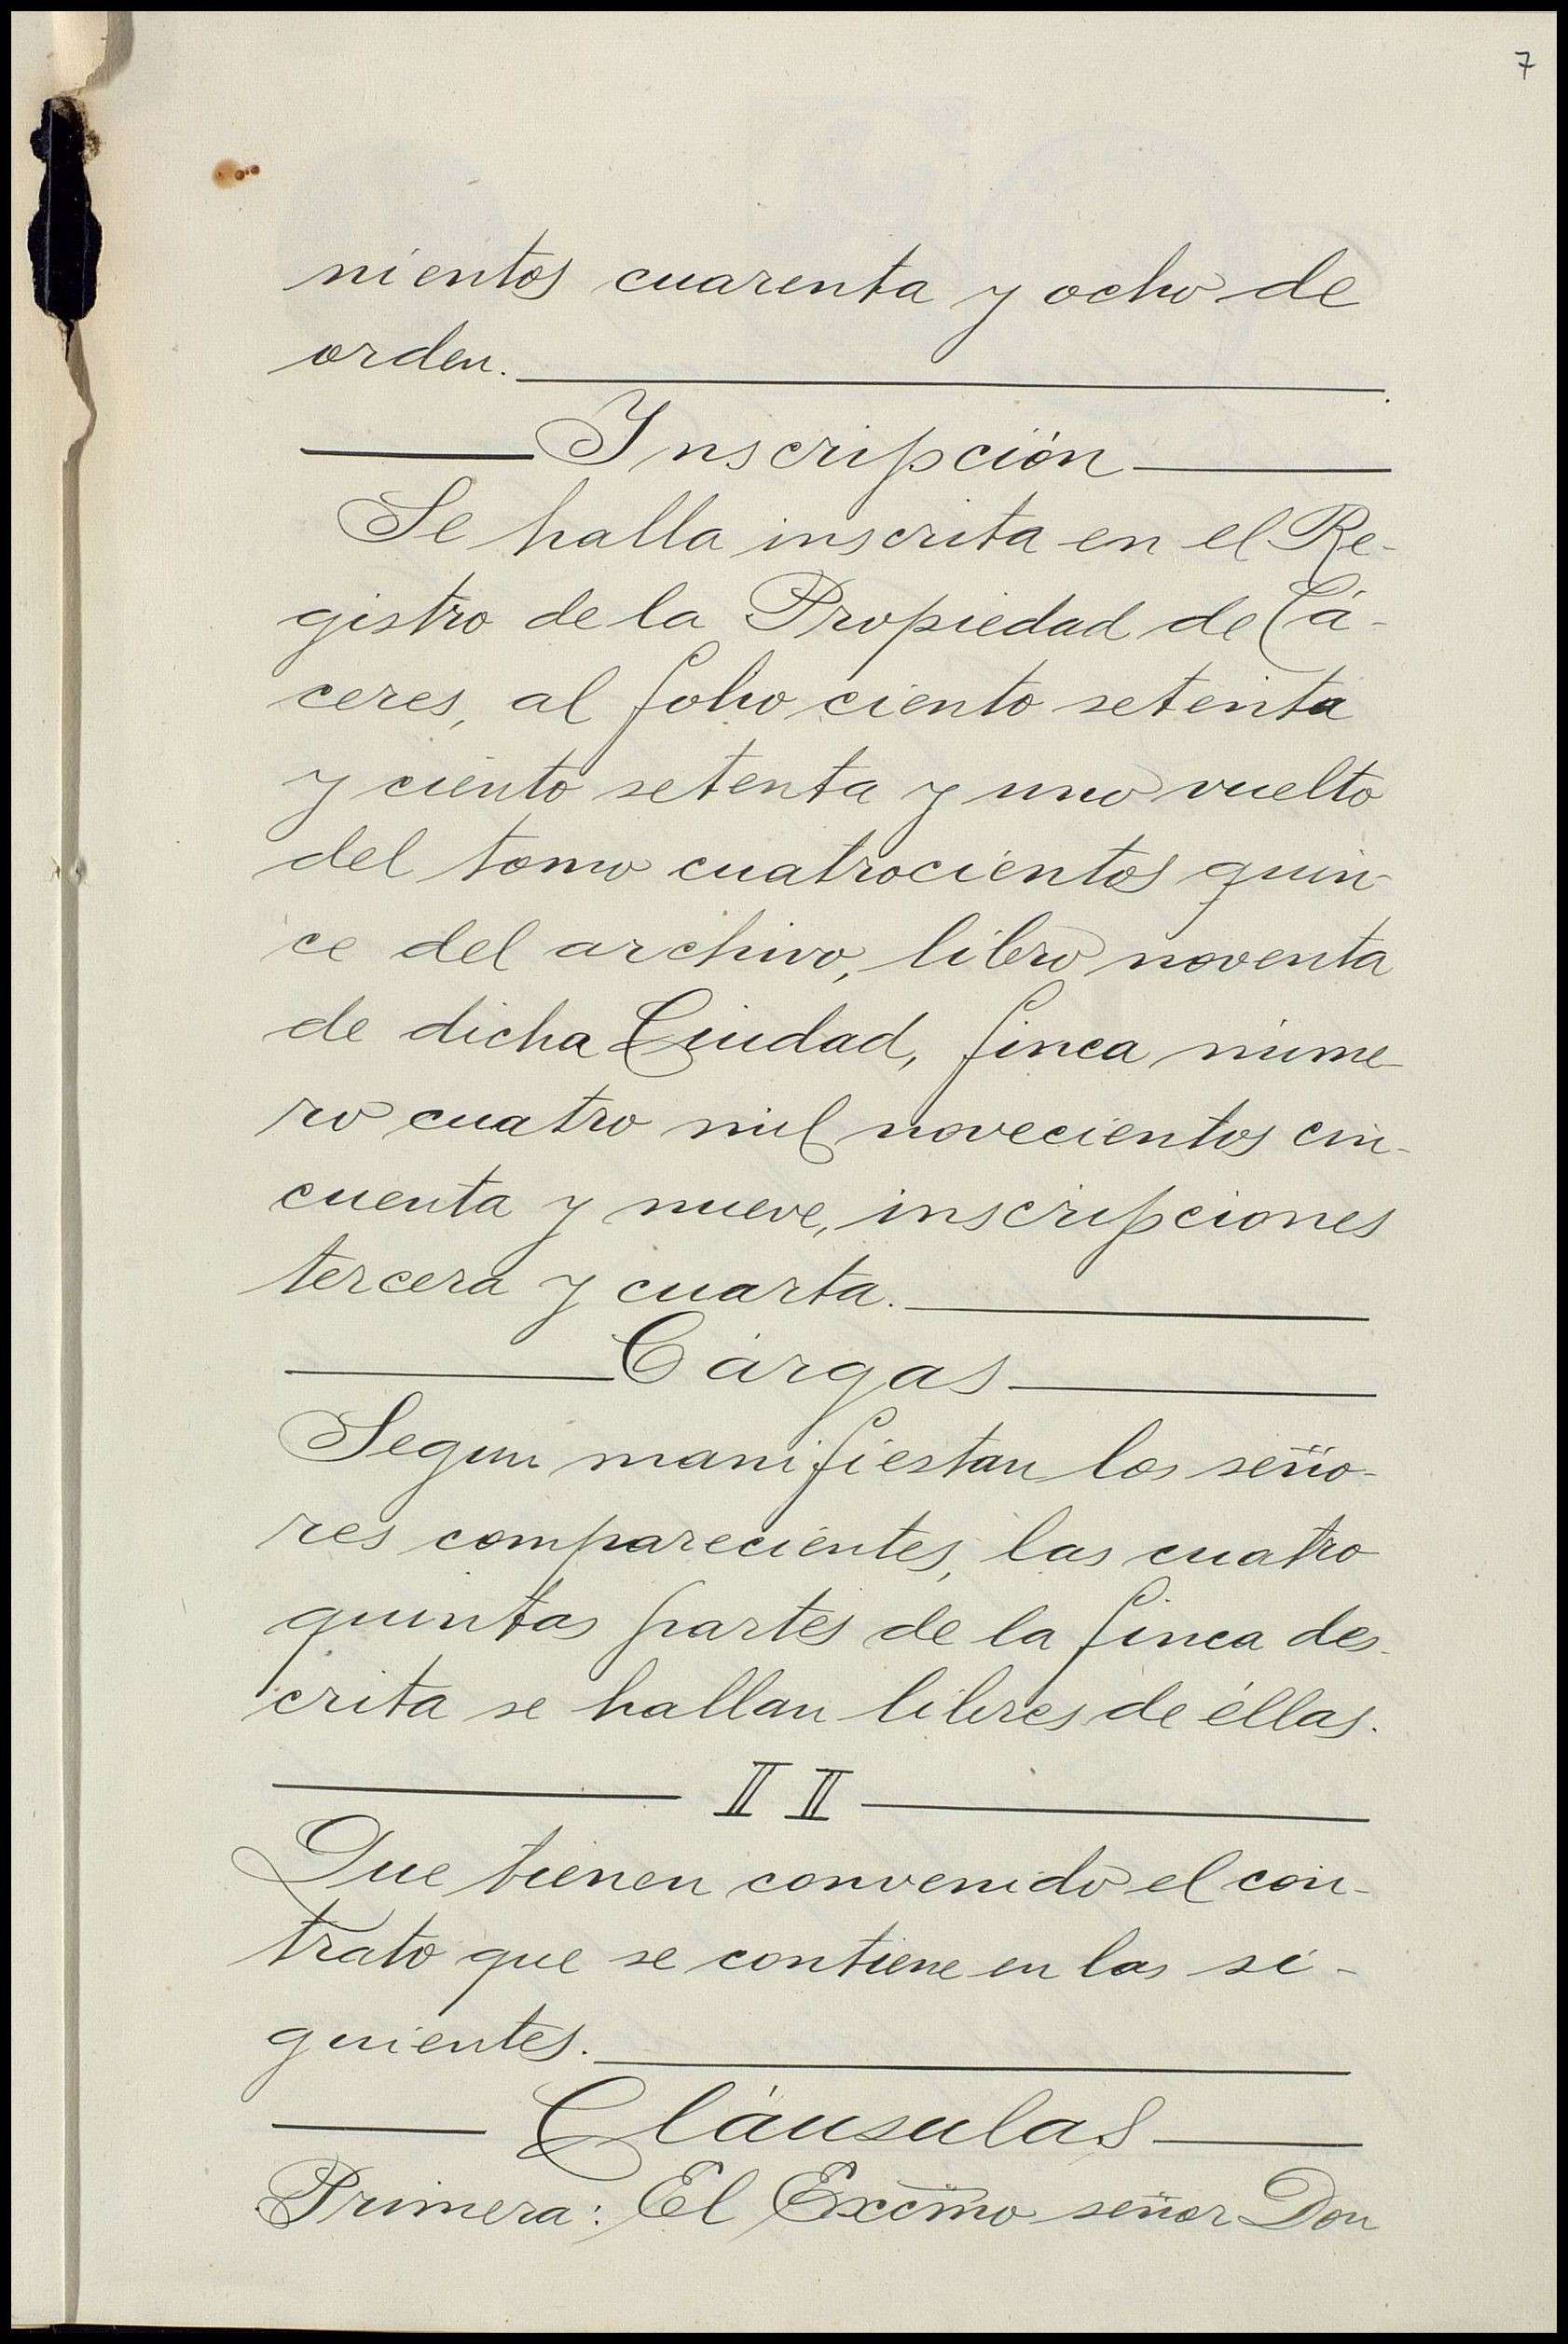 7
nientos cuarenta y ocho de
orden.
Inscripción
Se halla inscrita en el Re-
gistro de la Propiedad de Cá-
ceres, al folio ciento setenta
y ciento setenta y uno vuelto
del tomo cuatrocientos quin-
ce del archivo, libro noventa
de dicha Ciudad, finca núme-
ro cuatro mil novecientos cin-
cuenta y nueve, inscripciones
tercera y cuarta.
Cárgas
Segun manifiestan los seño-
res comparecientes, las cuatro
quintas partes de la finca des-
crita se hallan libres de éllas.
II
Que tienen convenido el con-
trato que se contiene en las si-
guientes.
Cláusulas
Primera: El Excmo señor Don